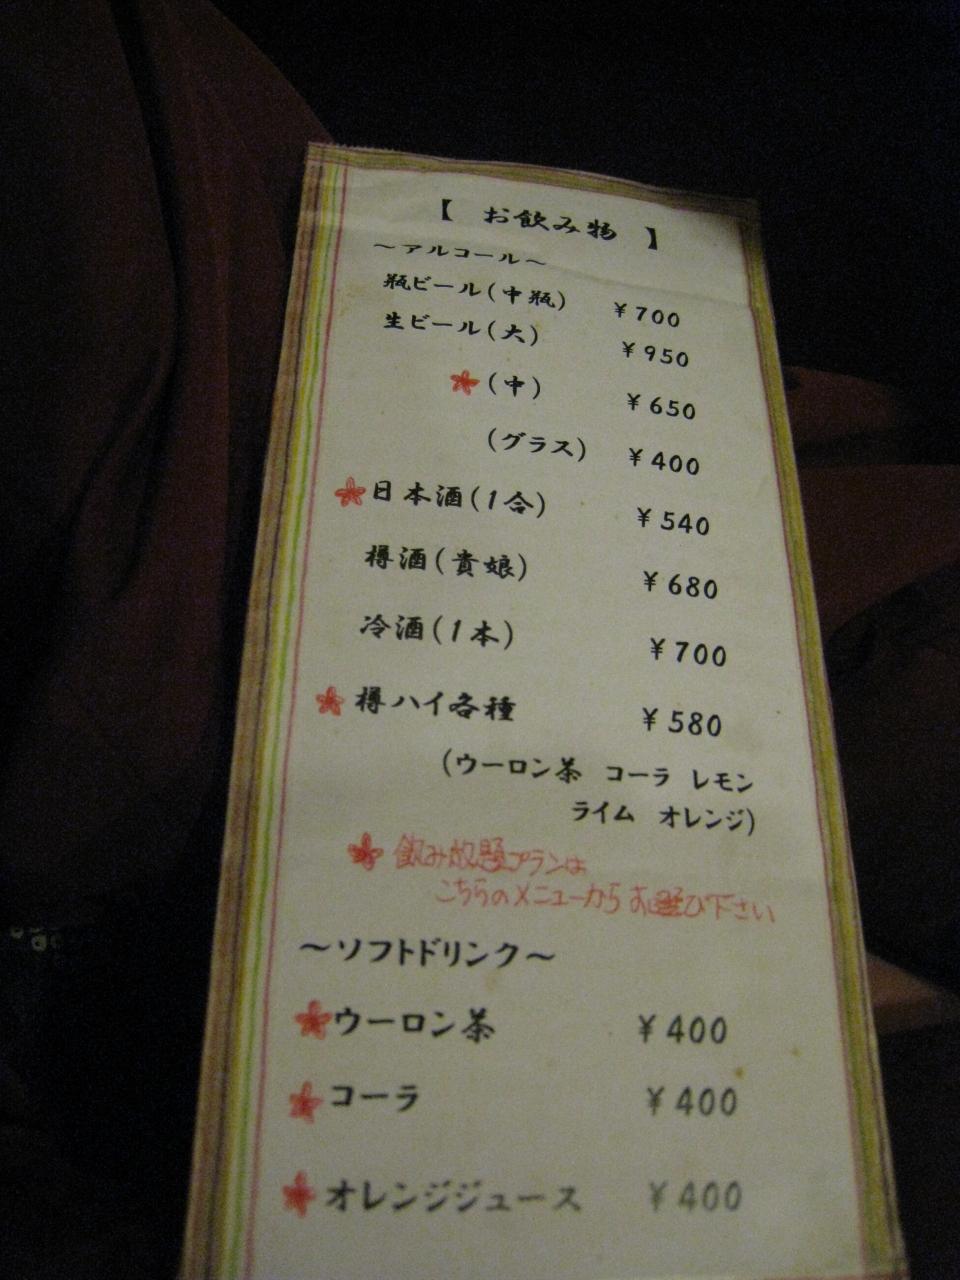 【 お飲み物 】
～アルコール～
瓶ビール(中瓶) ¥700
生ビール(大) ¥950
(中) ¥650
(グラス) ¥400
日本酒(1合) ¥540
樽酒(貴娘) ¥680
冷酒(1本) ¥700
樽ハイ各種 ¥580
(ウーロン茶 コーラ レモン
ライム オレンジ)
飲み放題プランは
こちらのメニューからお選び下さい
～ソフトドリンク～
ウーロン茶 ¥400
コーラ ¥400
オレンジジュース ¥400